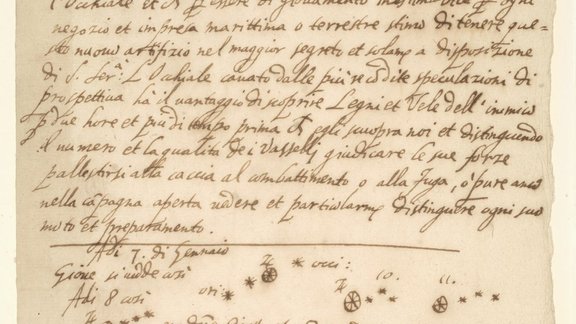 l'Ochiale et esser di giovamento inestimabile ogni
negozio et impresa marittima o terrestre stimo di tenere que=
sto nuovo artifizio nel maggior segreto et solam. a disposizione
di S. Ser.ª L'Ochiale cavato dalle più recondite speculazioni di
prospettiva ha il vantaggio di scoprire Legni et Vele dell'inimico
p due hore et più di tempo prima egli scuopra noi et distinguendo
il numero et la qualita de i Vasselli, giudicare le sue forze
pallestirsi alla caccia al combattimento o alla fuga, o pure anco
nella capagna aperta vedere et particolarm. distinguere ogni suo
moto et preparamento.
Adi 7. di Gennaio
Gione si vedde cosi occi:
Adi 8 cosi ori: 10. 11.